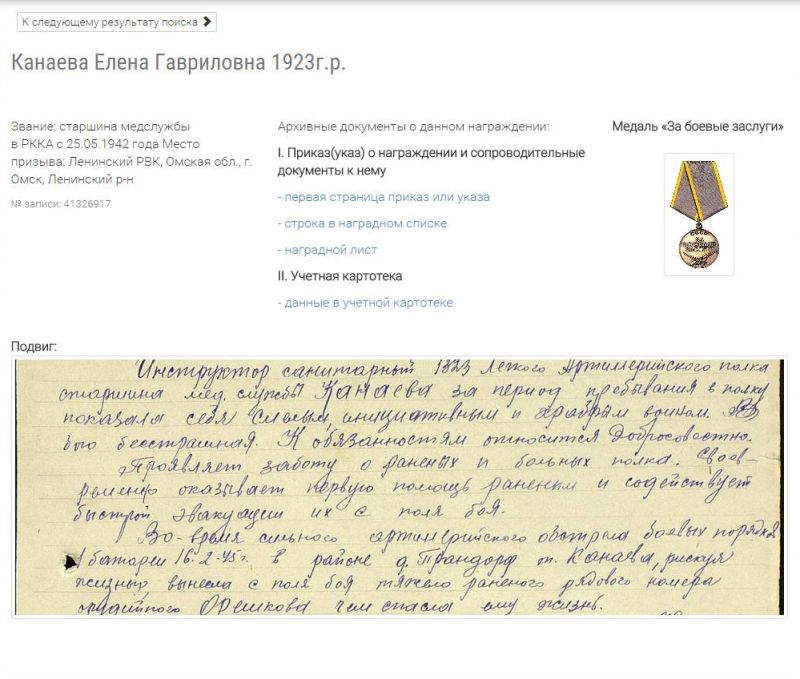 К следующему результату поиска
Канаева Елена Гавриловна 1923г.р.
Звание: старшина медслужбы
в РККА с 25.05.1942 года Место
призыва: Ленинский РВК, Омская обл., г.
Омск, Ленинский р-н
№ записи: 41326917
Архивные документы о данном награждении:
I. Приказ(указ) о награждении и сопроводительные
документы к нему
- первая страница приказ или указа
- строка в наградном списке
- наградной лист
II. Учетная картотека
- данные в учетной картотеке
Медаль «За боевые заслуги»
Подвиг:
Инструктор санитарный 1323 Легкого Артиллерийского полка
старшина мед. службы Канаева за период пребывания в полку
показала себя смелым, инициативным и храбрым воином. В
бою бесстрашная. К обязанностям относится добросовестно.
Проявляет заботу о раненых и больных полка. Своев-
ременно оказывает первую помощь раненым и содействует
быстрой эвакуации их с поля боя.
Во-время сильного артиллерийского обстрела боевых порядков
батареи 16-2-45г. в районе д. т. Канаева, рискуя
жизнью, вынесла с поля боя тяжело раненого рядового номера
орудийного Орешкова чем спасла ему жизнь.